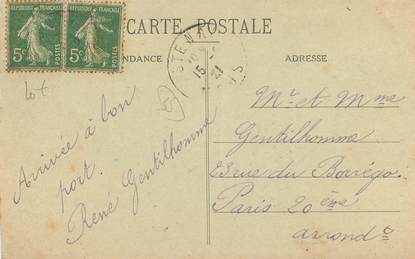 RÉPUBLIQUE FRANÇAISE RÉPUBLIQUE FRANÇAISE
5c POSTES 5c POSTES
CARTE POSTALE
STENA
15
21
S
NDANCE
ADRESSE
Arrivée à bon
port.
René Gentilhomme
Mr et Mme
Gentilhomme
23 rue du Borrégo
Paris 20ème
arrondt